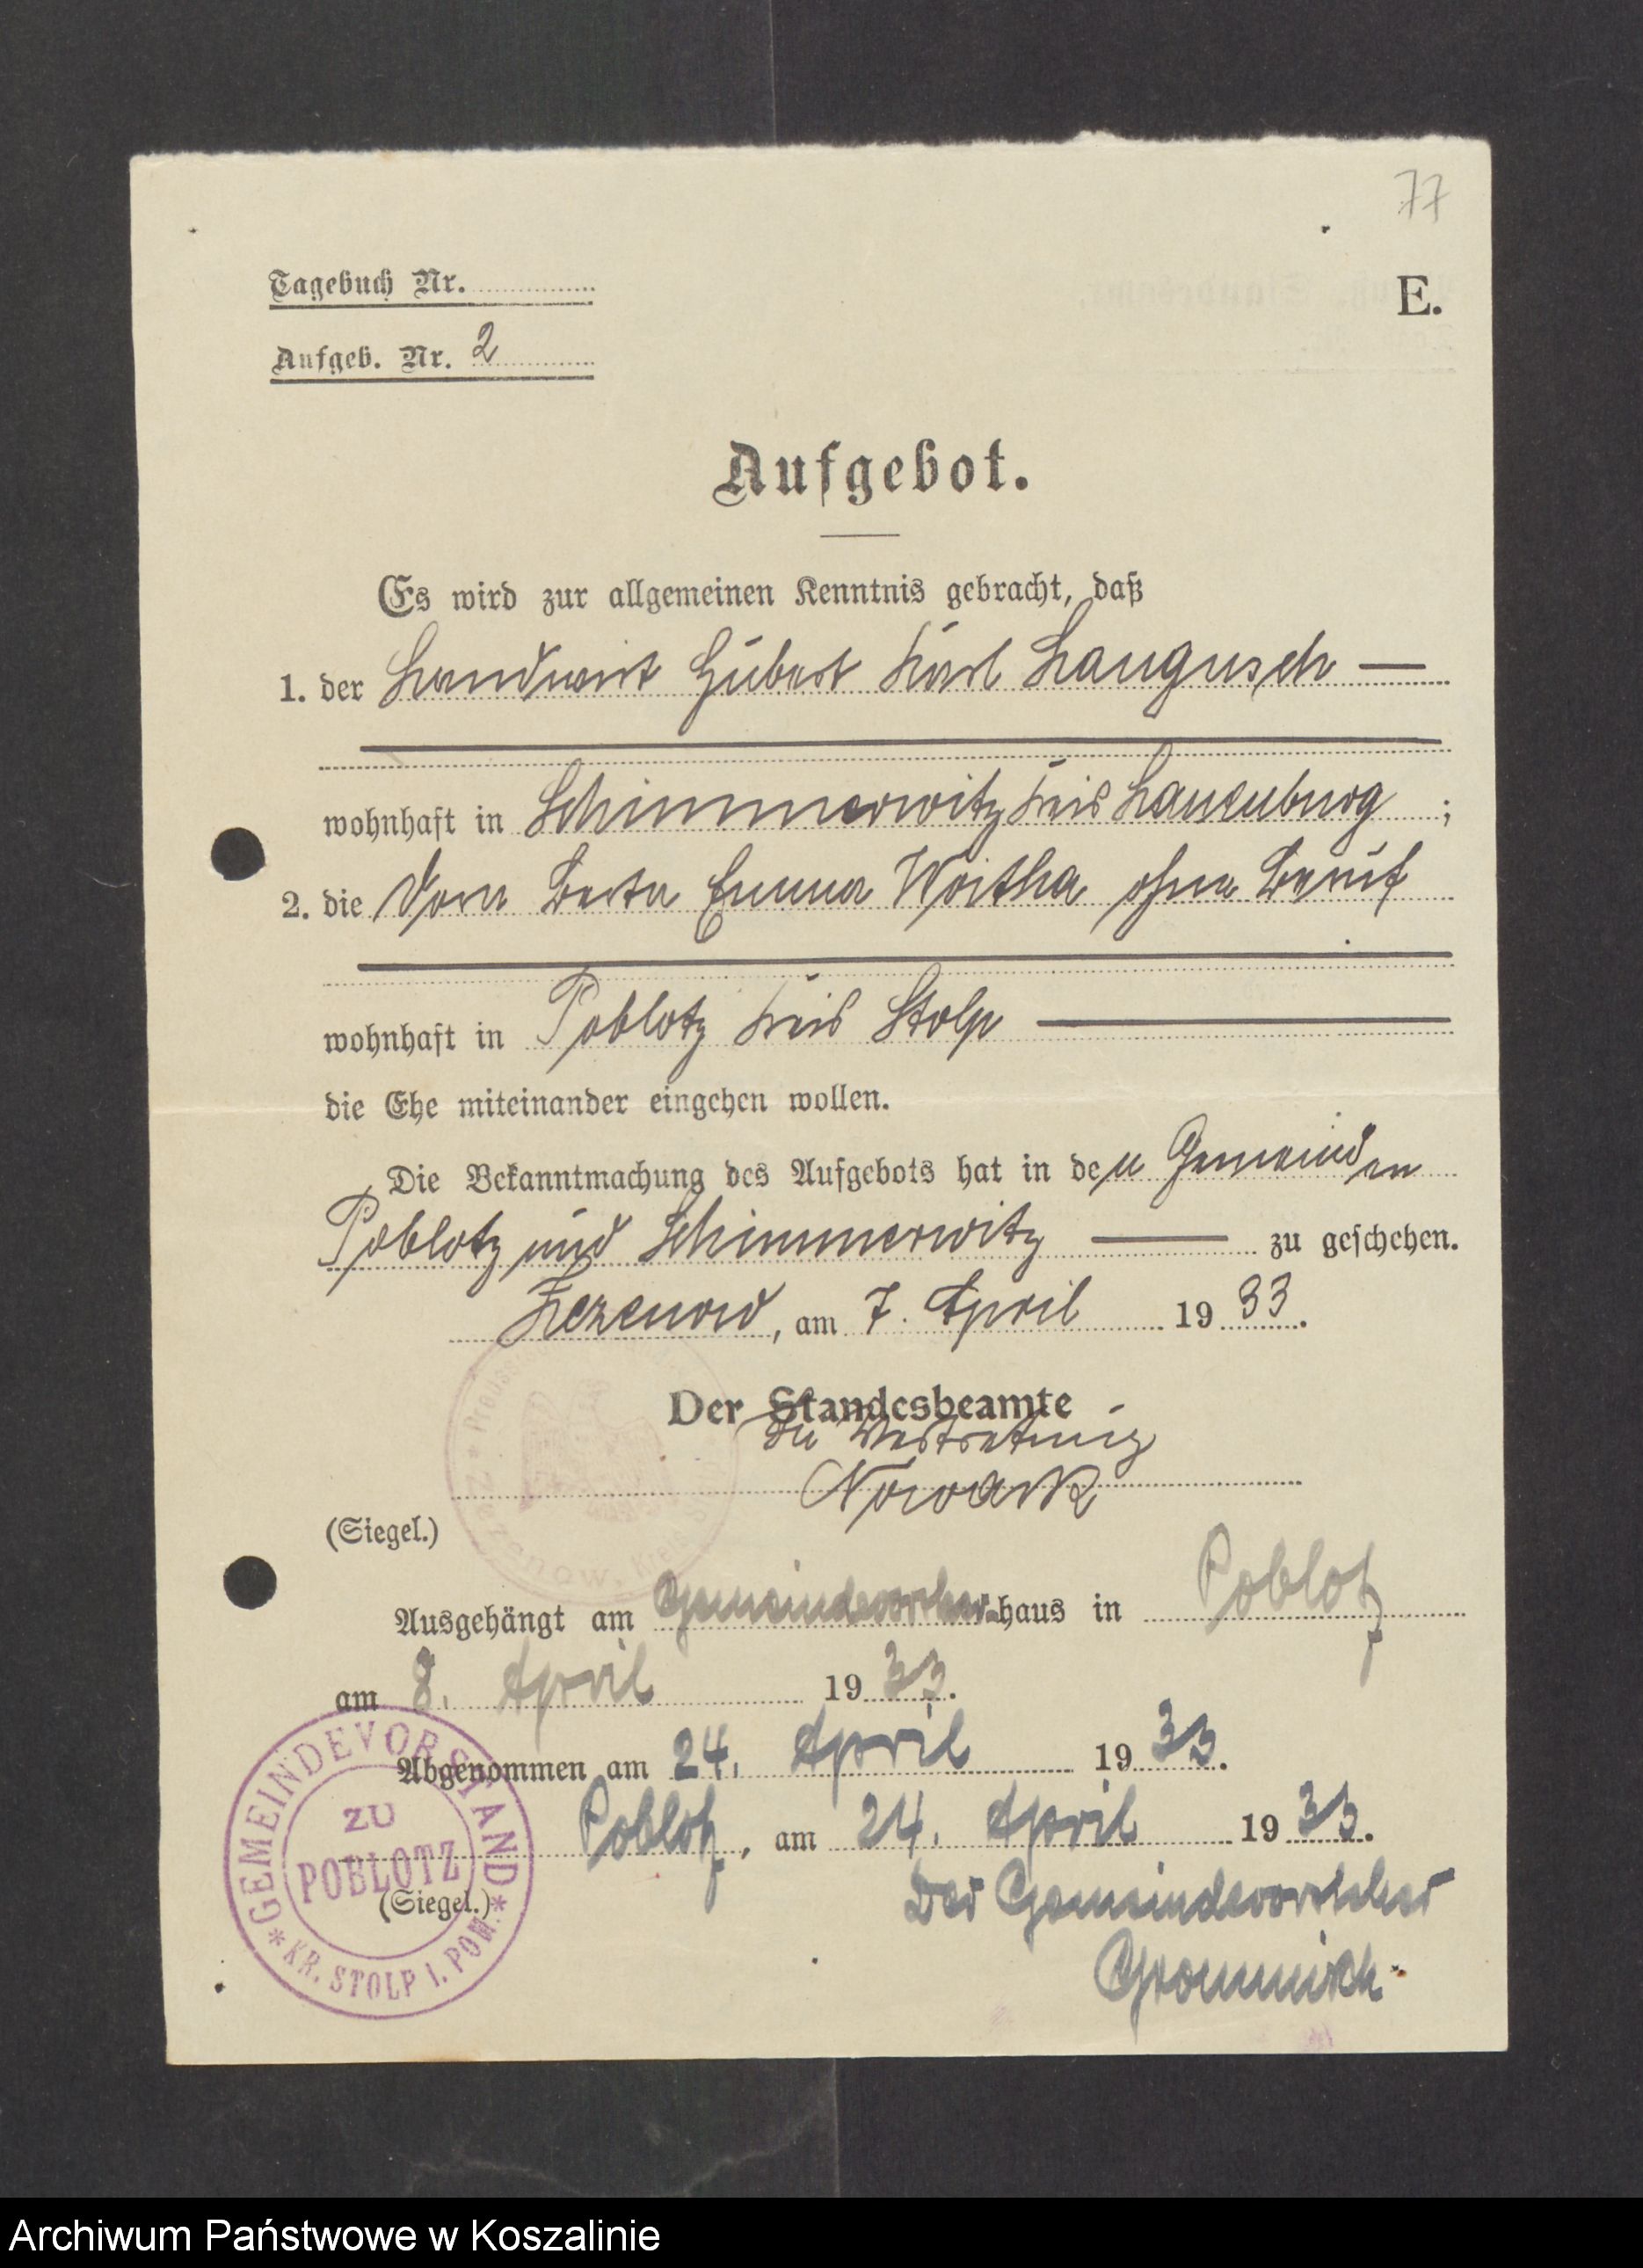 77
Tagebuch Nr.
E.
Aufgeb. Nr. 2
Aufgebot.
Es wird zur allgemeinen Kenntnis gebracht, daß
1. der Landwirt Hubert Karl Langusch —
wohnhaft in Schimmerwitz Kreis Lauenburg ;
2. die Dora Berta Emma Woitha ohne Beruf
wohnhaft in Poblotz Kreis Stolp —
die Ehe miteinander eingehen wollen.
Die Bekanntmachung des Aufgebots hat in den Gemeinden
Poblotz und Schimmerwitz — zu geschehen.
Zezenow, am 7. April 1933.
Der Standesbeamte
In Vertretung
Nowack
(Siegel.)
Ausgehängt am haus in Poblotz
am 8. April 1933.
Abgenommen am 24. April 1933.
Poblotz, am 24. April 1933.
Der Gemeindevorsteher
(Siegel.)
GEMEINDEVORSTAND
ZU
POBLOTZ
* KR. STOLP I. POM. *
Archiwum Państwowe w Koszalinie